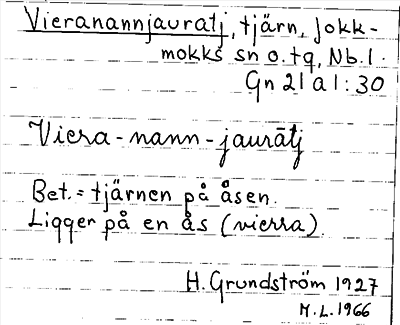 Vieranannjauratj, tjärn, Jokk-
mokks sn o. tg, Nb. l.
Gn 21 a 1:30
Viera-nann-jaurātj
Bet. = tjärnen på åsen.
Ligger på en ås (vierra).
H. Grundström 1927
M.L. 1966